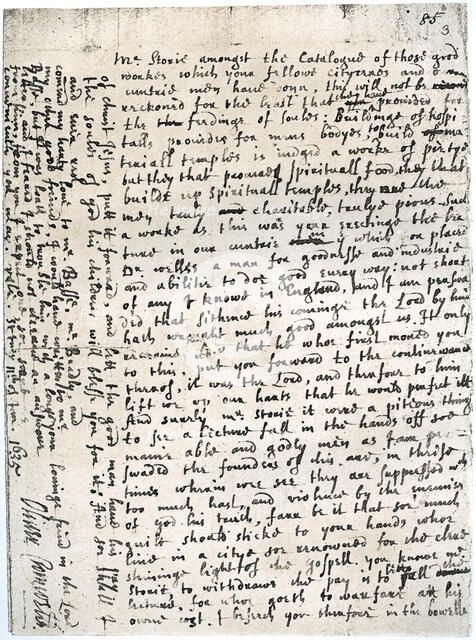 85
3
Mr Storie amongst the Catalogue of those good
workes which your fellowe cityzenes and our
cuntrie men have donn, this will not be
reckoned for the least that they have provided for
the feedinge of soules: Buildinge of hospi
talls provides for mens bodyes, to build ma
teriall temples is judged a worke of pietye
but they that procure spirituall food, they that
builde up spirituall temples, they are the
men truly charitable, trulye pious. Such
a worke as this was your erectinge the lec
ture in our cuntrie in the which you placed
Dr welles a man for goodnesse and industrie
and abilitie to doe good every way: not short
of any I knowe in England, and I am perswa
ded that sithence his cominge the Lord by him
hath wrought much good amongst us. It only
remaines now that he whoe first moved you
to this, put you forward to the continewance
thereof, it was the Lord, and therfore to him
lift we up our harts that he would perfect itt
And surely Mr Storie it were a piteous thinge
to see a lecture fall in the hands off soe
manie able and godly men as I am per
swaded the founders of this are, in theise
times wherin we see they are suppressed with
too much hast, and violence by the enemies
of god his truth, farr be it that soe much
guilt should sticke to your hands whoe
live in a citye soe renowned for the clere
shininge light of the gospell. you knowe Mr
Storie to withdrawe the pay is to lett fall the
lecture, for whoe goeth to warfare at his
owne cost. I beseech you therfore in the bowells
of christ Jesus, putt it forward and lett the good man have his pay
the soules of god his children will blesse you for it: And soe shall I
and ever rest
your lovinge freind in the Lord
Oliver Cromwell
comend my hearty love to Mr Busse, Mr Beadly and
my other good freinds. I would have written to Mr
Busse but I was loath to trouble him with a longe
letter and I feared I should not receive an answer
St Ives 11th of Jan: 1635